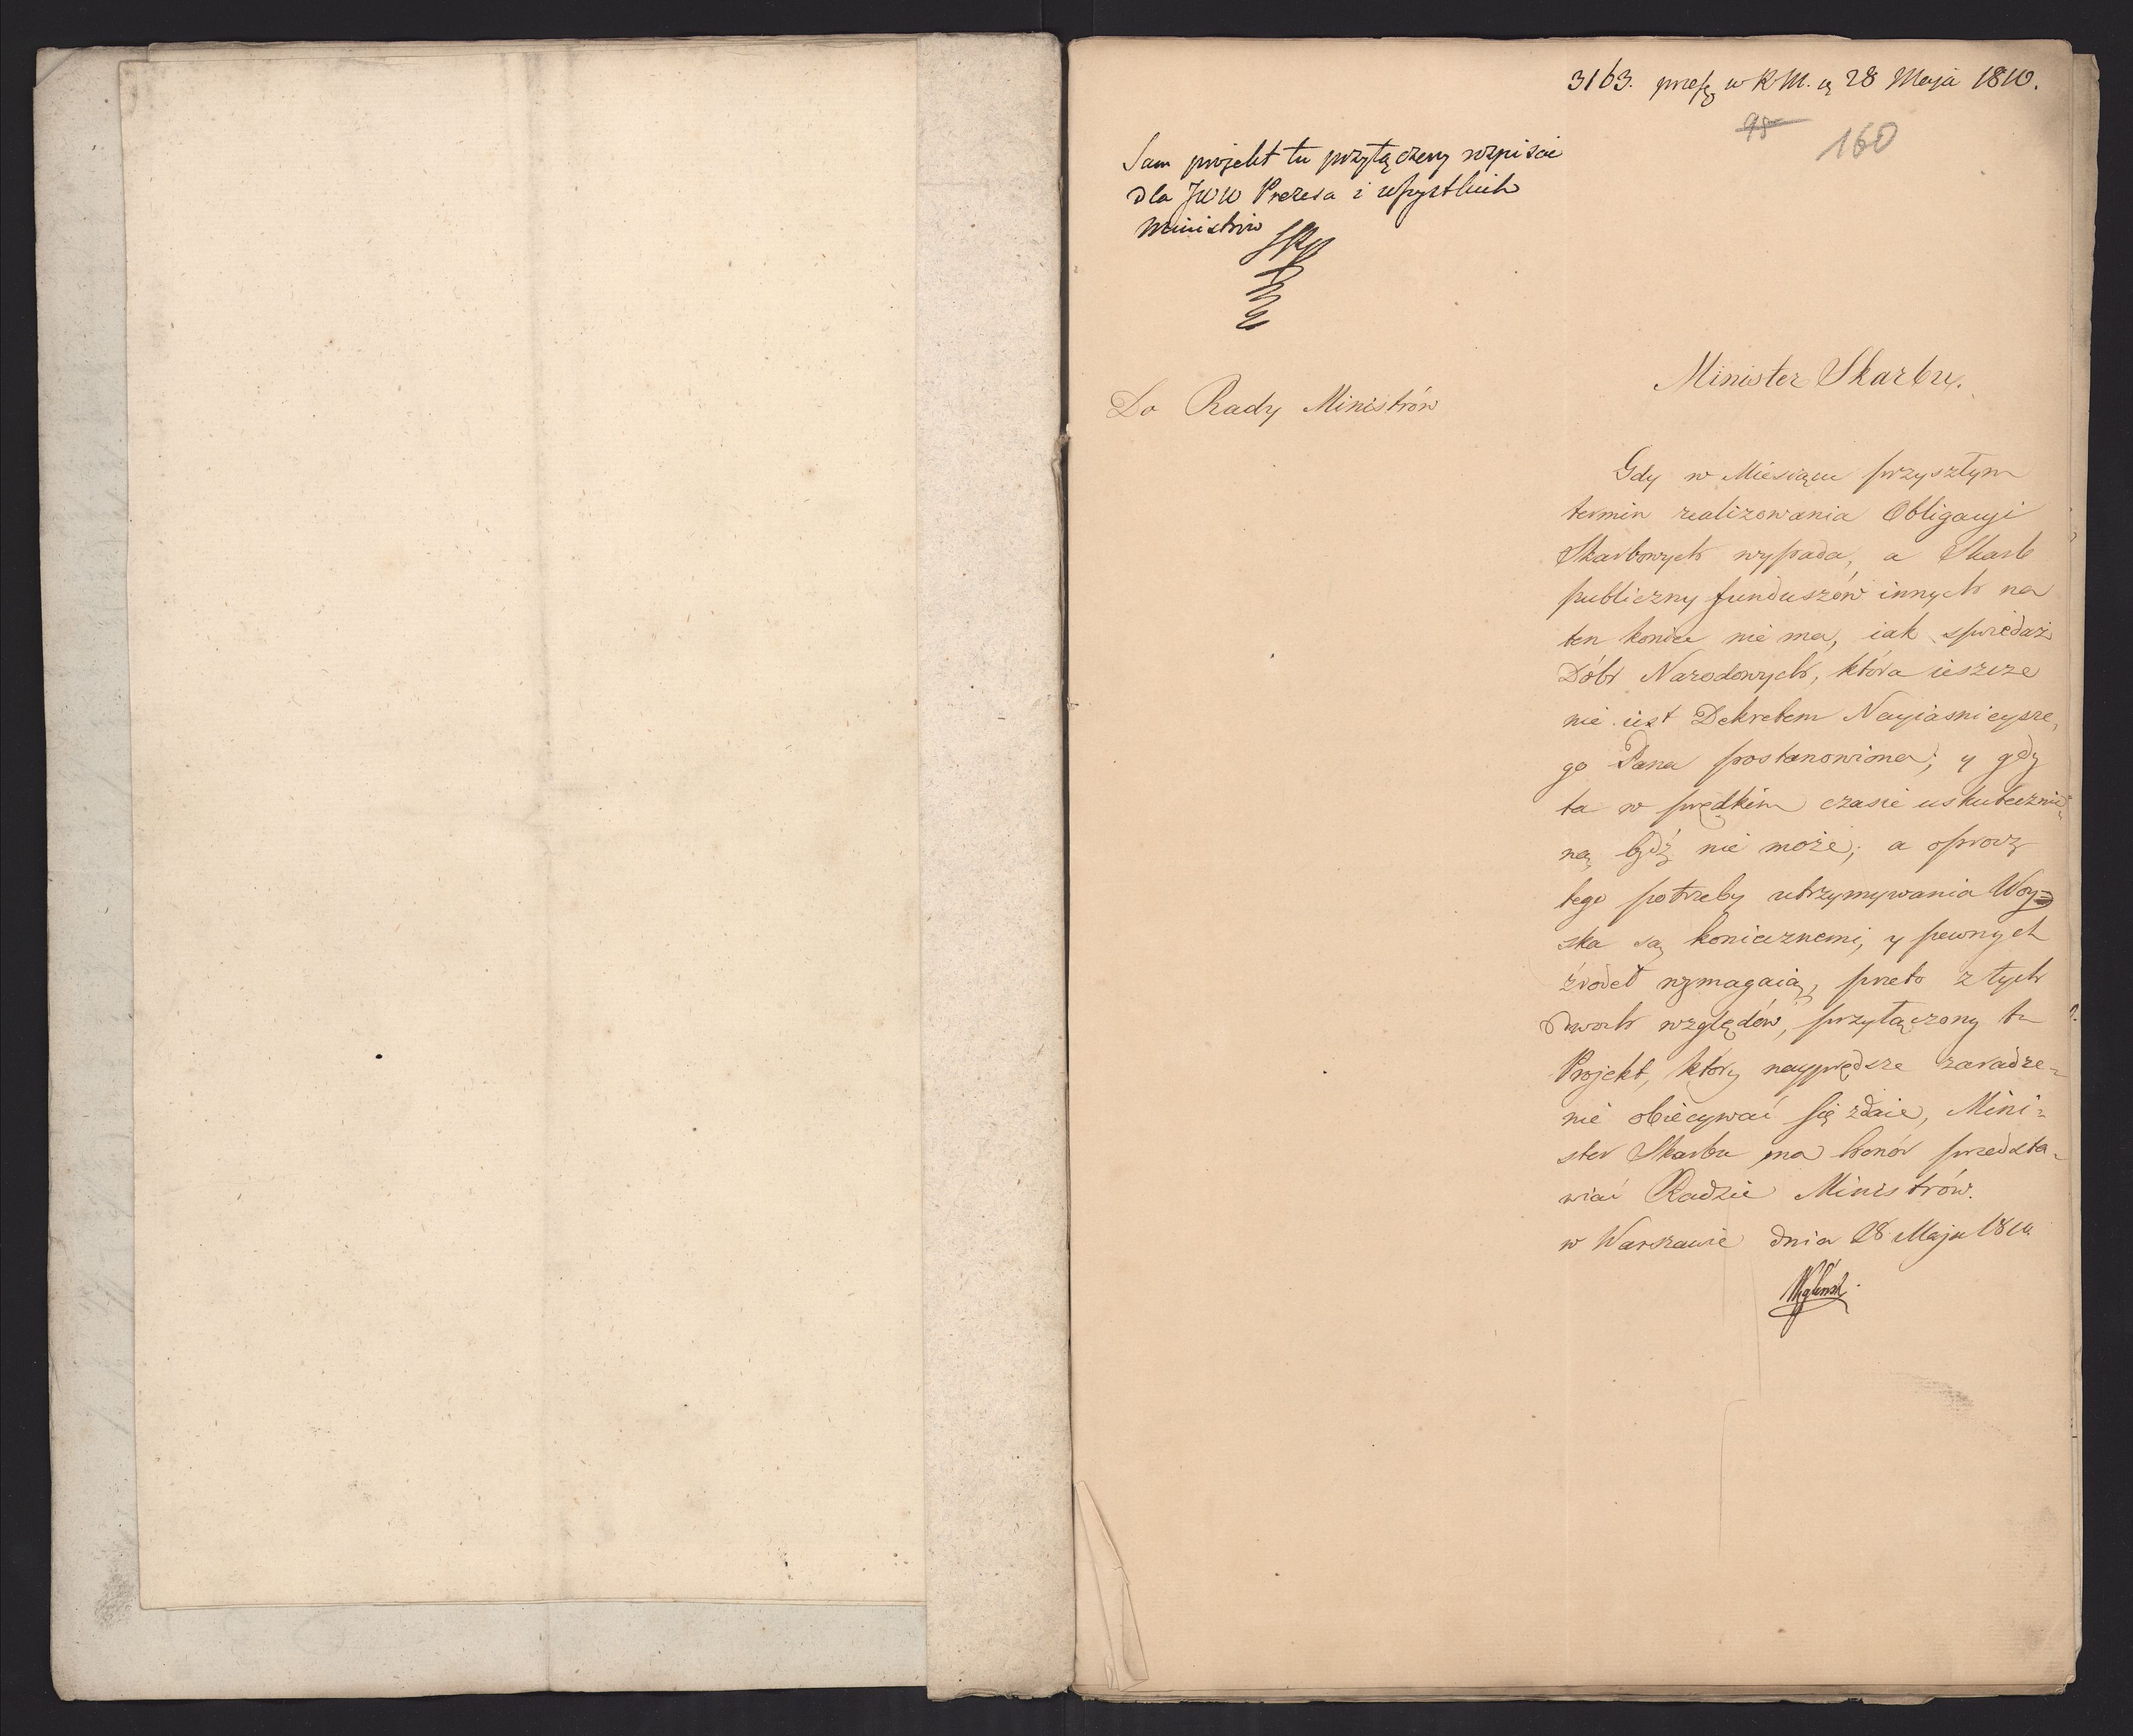 3163. w R.M. 28 Maja 1810.
95 160
Sam projekt tu przyłączony rozpisać
dla JWW Prezesa i wszystkich
Ministrów
Minister Skarbu.
Do Rady Ministrów
Gdy w Miesiącu przyszłym
termin realizowania Obligacyi
Skarbowych wypada, a Skarb
publiczny funduszów innych na
ten koniec nie ma, iak sprzedaż
Dóbr Narodowych, która ieszcze
nie iest Dekretem Nayiasnieysze,
go Pana postanowiona; y gdy
ta w prędkim czasie uskutecznio-
ną bydź nie może; a oprocz
tego potrzeby utrzymywania Woy=
ska są koniecznemi, y pewnych
źrodeł wymagaią, przeto z tych
dwoch względów, przyłączony tu
Projekt, który nayprędsze zaradze-
nie obiecywać się zdaie, Mini=
ster Skarbu ma honór przedsta-
wiać Radzie Ministrów.
w Warszawie dnia 28 Maja 1810
Węgleński